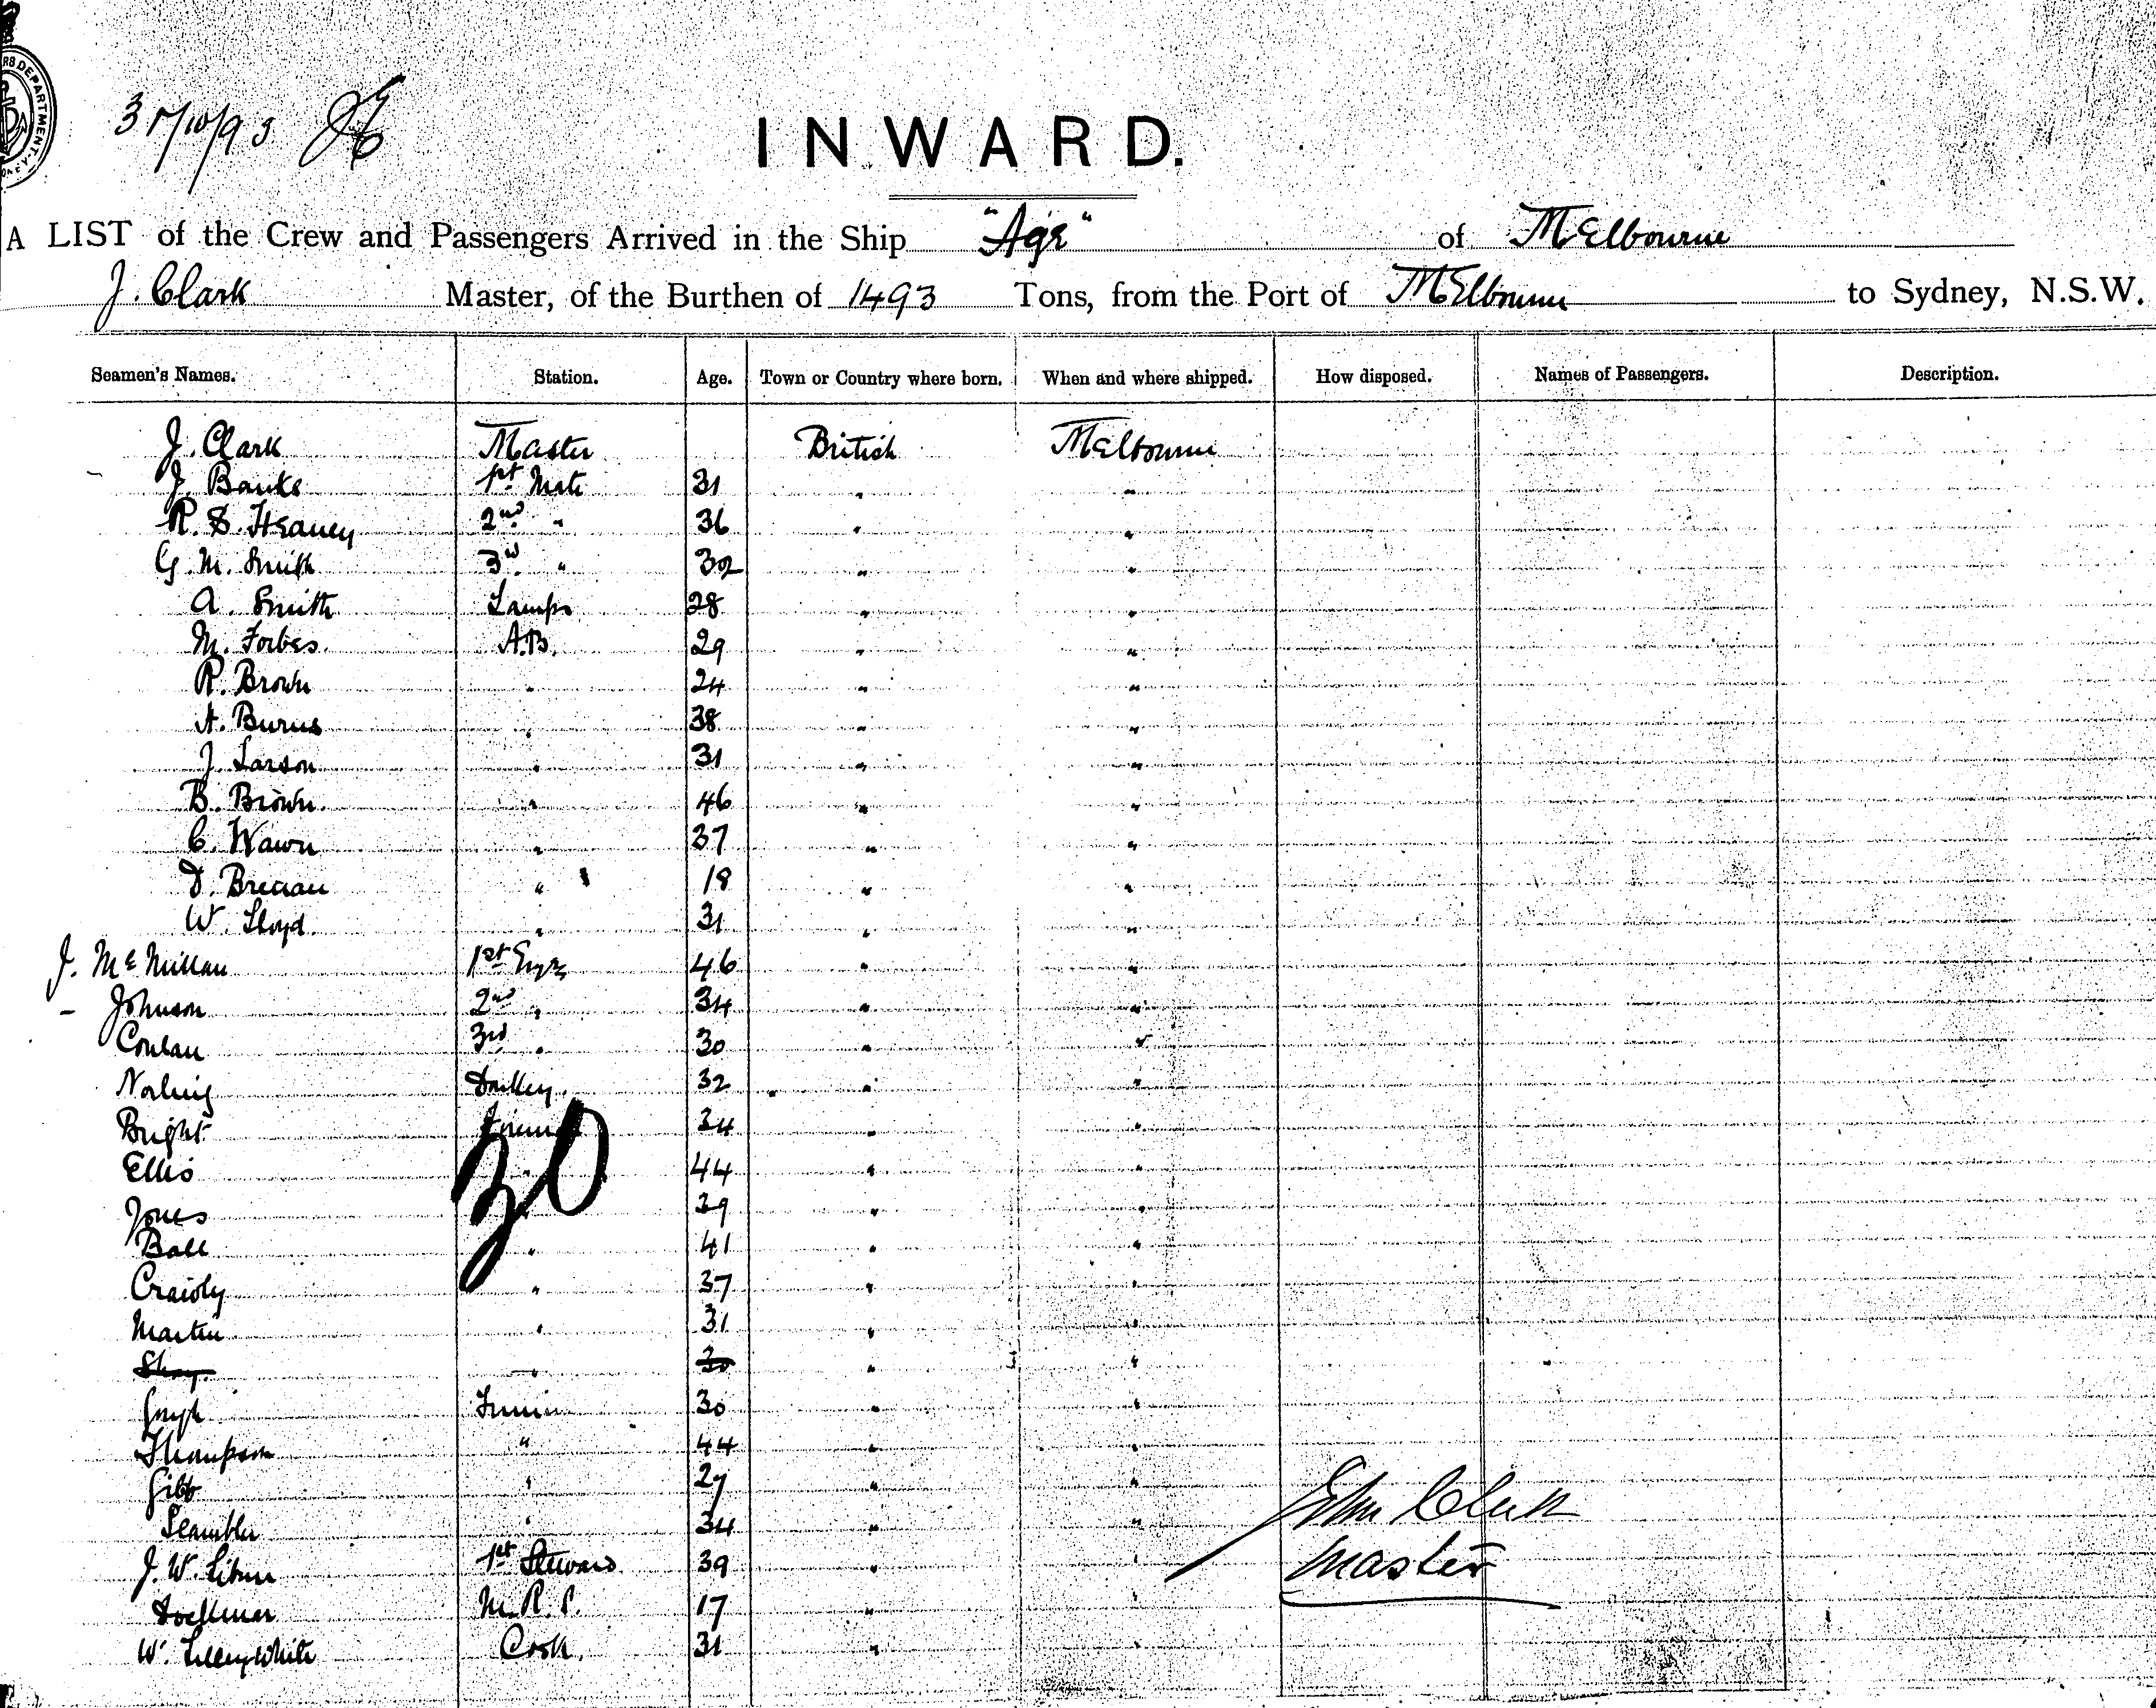 RS DEPARTMENT.
31/10/93
INWARD.
A LIST of the Crew and Passengers Arrived in the Ship "Age" of Melbourne
J. Clark Master, of the Burthen of 1493 Tons, from the Port of Melbourne to Sydney, N.S.W.
Seamen's Names. Station. Age. Town or Country where born. When and where shipped. How disposed. Names of Passengers. Description.
J. Clark Master British Melbourne
J. Banks 1st Mate 31 " "
R. S. Heaney 2nd " 36 " "
G. M. Smith 3d " 32 " "
A. Smith Lamps 28 " "
M. Forbes A.B. 29 " "
R. Brown " 24 " "
A. Burns " 38 " "
J. Larson " 31 " "
B. Brown " 46 " "
C. Wawn " 37 " "
D. " 18 " "
W. Lloyd " 31 " "
J. McMillan 1st Engr 46 " "
Johnson 2nd " 34 " "
Conlan 3rd " 30 " "
Norling Donkey 32 " "
Bright 34 " "
30
Ellis " 44 " "
Jones " 39 " "
Ball " 41 " "
" 37 " "
Martin " 31 " "
" 30 " "
30 " "
Thompson " 44 " "
Gibb " 27 " "
Scambler " 34 " "
J. W. 1st Steward 39 " "
M.R.S. 17 " "
W. Lilleywhite Cook 31 " "
John Clark
Master